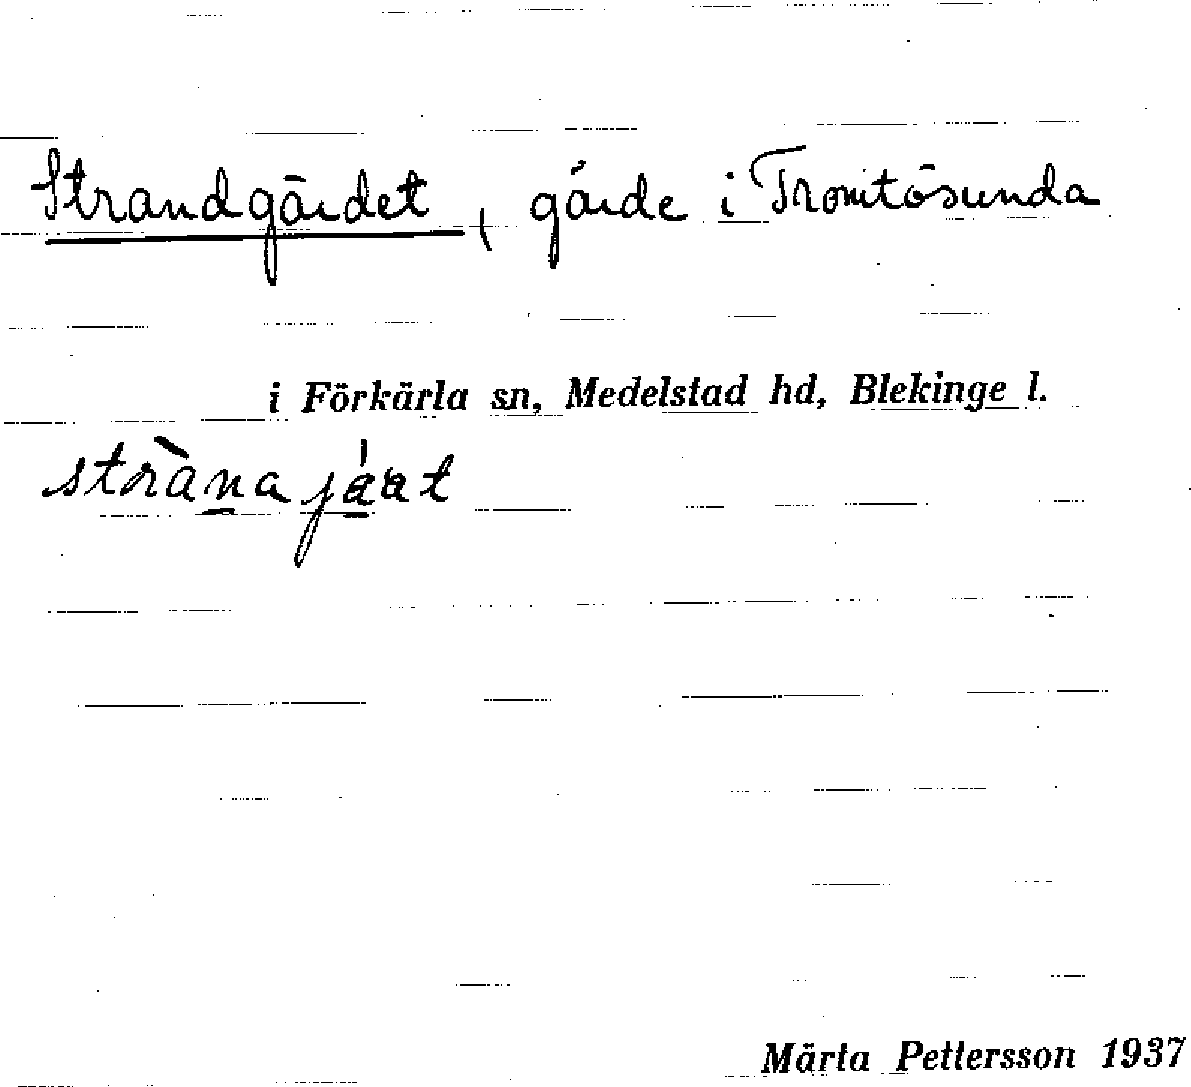 Strandgärdet, gärde i Tromtösunda
i Förkärla sn, Medelstad hd, Blekinge l.
strànajáat
Märta Pettersson 1937